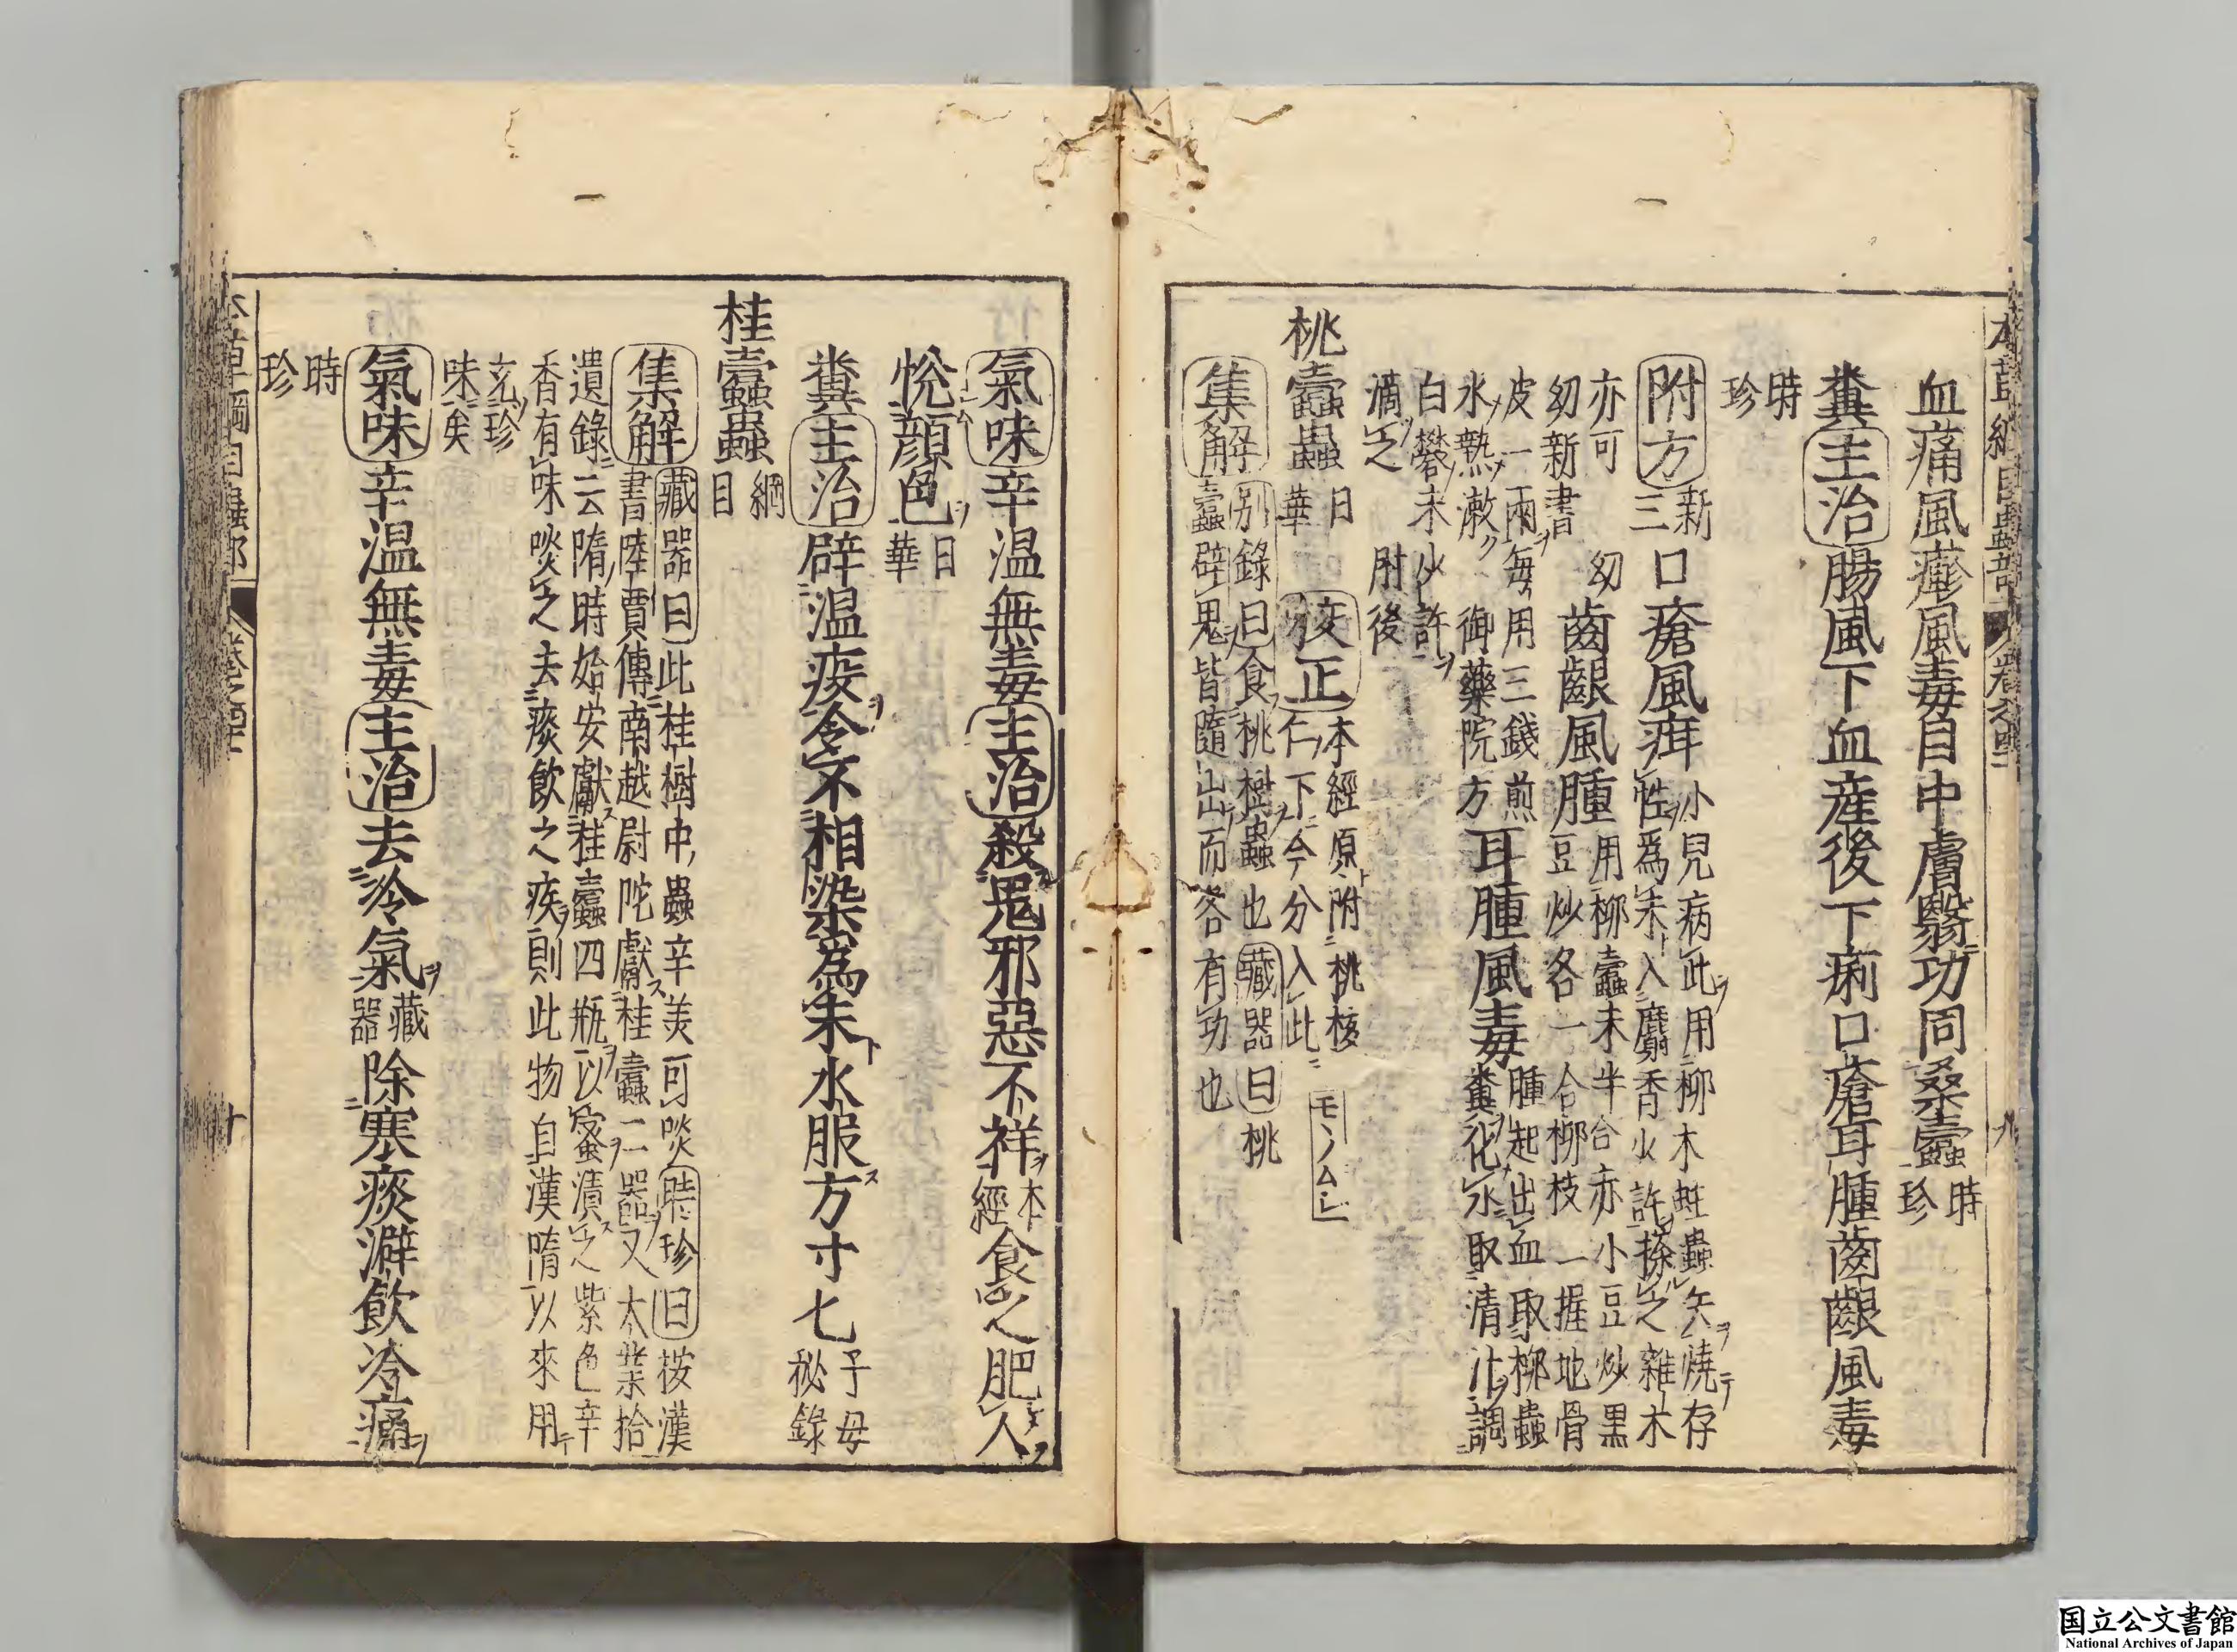 本草綱目蟲部 卷之四十一 九
血痛風癮風毒目中膚翳功同桑蠹時珍
糞主治腸風下血産後下痢口瘡耳腫齒齦風毒
時珍
附方新三口瘡風疳小兒病此用柳木蛀蟲矢燒存
性爲末入麝香少許搽之雜木
亦可幼幼新書齒齦風腫用柳蠹末半合赤小豆炒黑
豆炒各一合柳枝一握地骨
皮一兩每用三錢煎水熱漱御藥院方耳腫風毒腫起出血取柳蟲
糞化水取清汁調
白礬末少許滴之肘後
桃蠹蟲日華校正本經原附桃核仁下今分入此
モノムシ
集解別錄曰食桃樹蟲也藏器曰桃
蠹辟鬼皆隨出而各有功也
氣味辛温無毒主治殺鬼邪惡不祥本經食之肥人
悅顔色日華
糞主治辟温疫令不相染爲末水服方寸七子母秘錄
桂蠹蟲綱目
集解藏器曰此桂樹中蟲辛美可啖時珍曰桉漢
書陸賈傳南越尉陀獻桂蠹二器又大業拾
遺錄云隋時始安獻桂蠹四瓶以蜜漬之紫色辛
香有味啖之去痰飲之疾則此物自漢隋以來用
充珍味矣
氣味辛温無毒主治去冷氣藏器除寒痰澼飲冷痛
時珍
本草綱目蟲部 卷之四十一 十
国立公文書館
National Archives of Japan